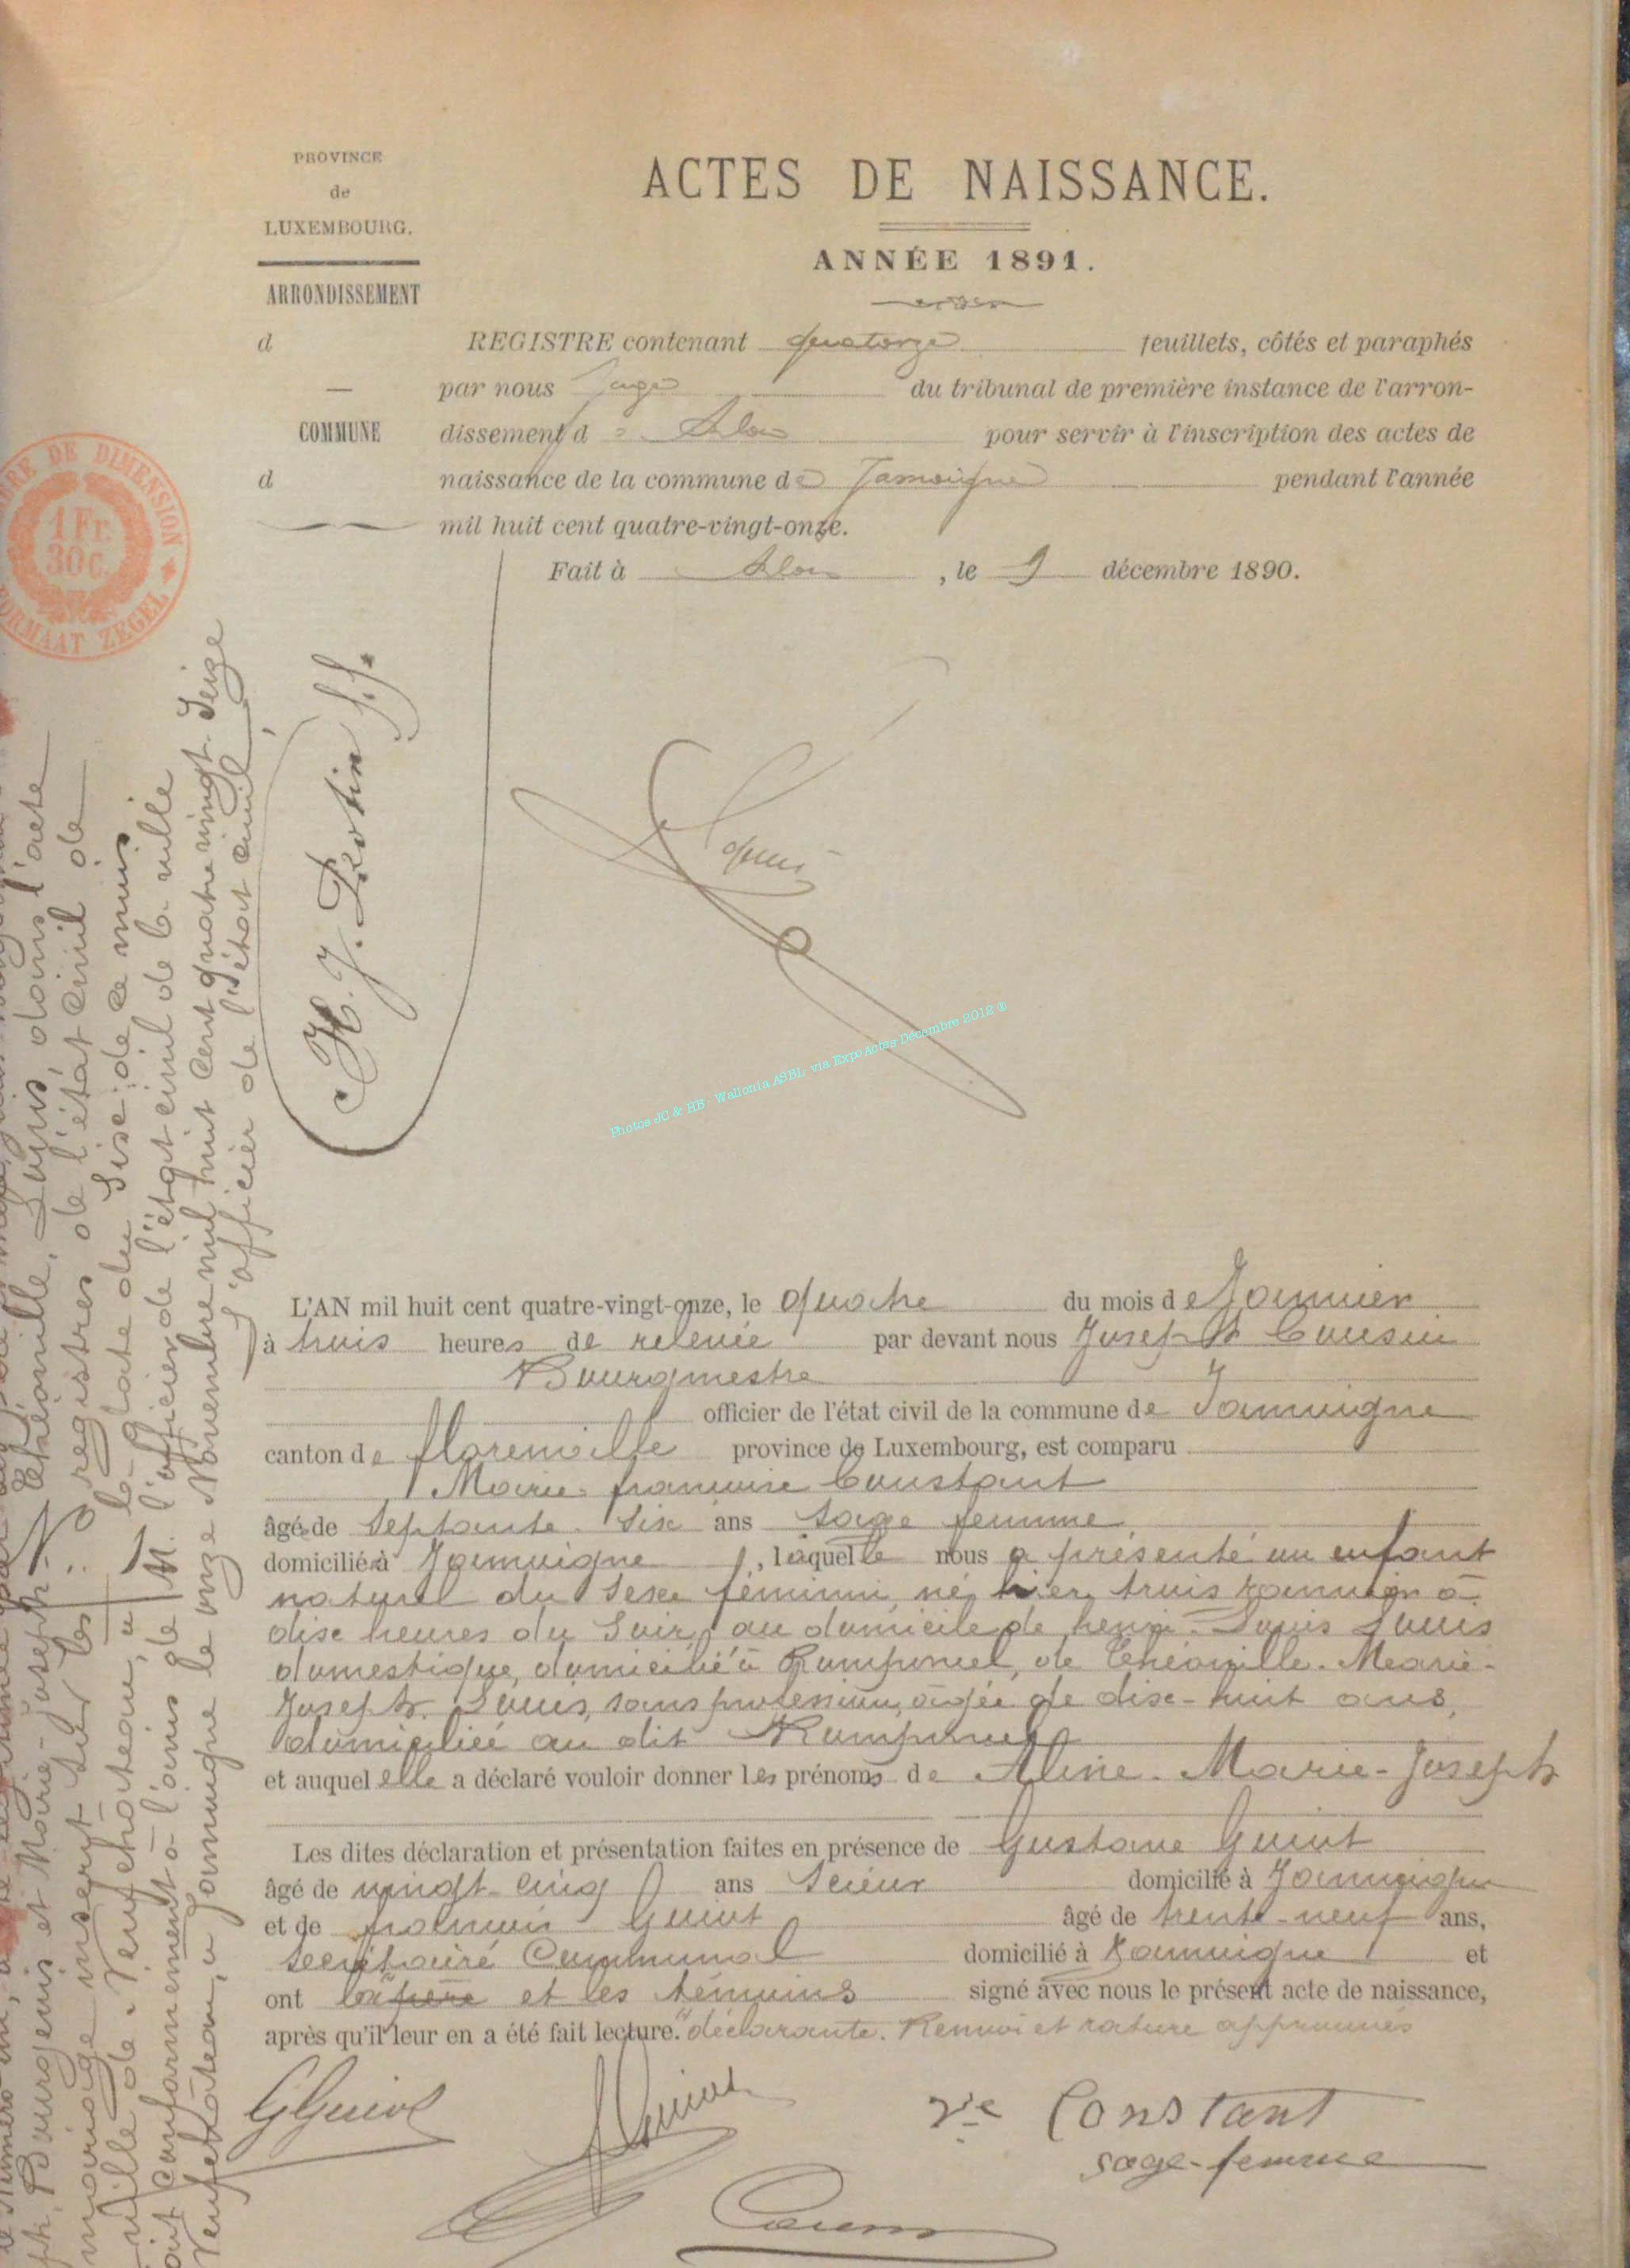 PROVINCE
de
LUXEMBOURG.
ARRONDISSEMENT
d
COMMUNE
d
ACTES DE NAISSANCE.
ANNÉE 1891.
REGISTRE contenant quatorze feuillets, côtés et paraphés
par nous Juge du tribunal de première instance de l'arron-
dissement d Arlon pour servir à l'inscription des actes de
naissance de la commune de Jamoigne pendant l'année
mil huit cent quatre-vingt-onze.
Fait à Arlon, le 9 décembre 1890.
DE DIMENSION
1 Fr.
30 C.
FORMAAT ZEGEL
Photos JC & HB - Wallonia ASBL via ExpoActes Décembre 2012 ®
N° 1
L'AN mil huit cent quatre-vingt-onze, le quatre du mois de Janvier
à trois heures de relevée par devant nous Joseph Cousin
Bourgmestre
officier de l'état civil de la commune de Jamoigne
canton de florenville province de Luxembourg, est comparu
Marie-françoise Constant
âgé de Septante-Six ans Sage femme
domiciliée à Jamoigne, laquelle nous a présenté un enfant
naturel du Sexe féminin né hier trois Janvier à
dix heures du Soir, au domicile de henri-Louis Louis
domestique, domicilié à Romponcel, de Théonille-Marie-
Joseph Louis, sans profession, âgée de dix-huit ans,
domiciliée au dit Romponcel
et auquel elle a déclaré vouloir donner les prénoms de Aline-Marie-Joseph
Les dites déclaration et présentation faites en présence de Gustave Guiot
âgé de vingt-cinq ans Scieur domicilié à Jamoigne
et de françois Guiot âgé de trente-neuf ans,
secrétaire Communal domicilié à Jamoigne et
ont la père et les témoins signé avec nous le présent acte de naissance,
après qu'il leur en a été fait lecture. "déclarante. Renvoi et rature approuvés
GGuiot
Guiot
Ve Constant
sage-femme
Cousin
Bourgeois et Marie-Joseph-Théonille, Louis, dans l'acte
mariage inscrit sur les registres de l'état civil de
ville de Neufchâteau, à la date du Sise de ce mois
conformément à l'avis de M. l'officier de l'état civil de la ville
Neufchâteau, à Jamoigne le onze Novembre mil huit cent quatre vingt-Seize
L'officier de l'état civil,